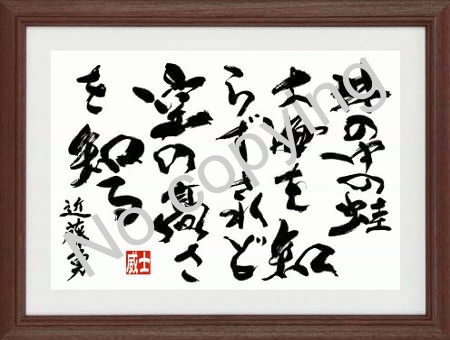 井の中の蛙
大海を知
らずされど
空の高さ
を知る。
近藤
威士
No copying